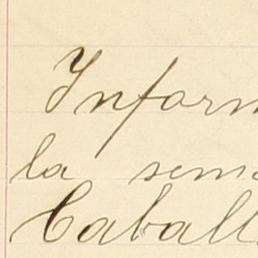 Inform
la sema
Caball